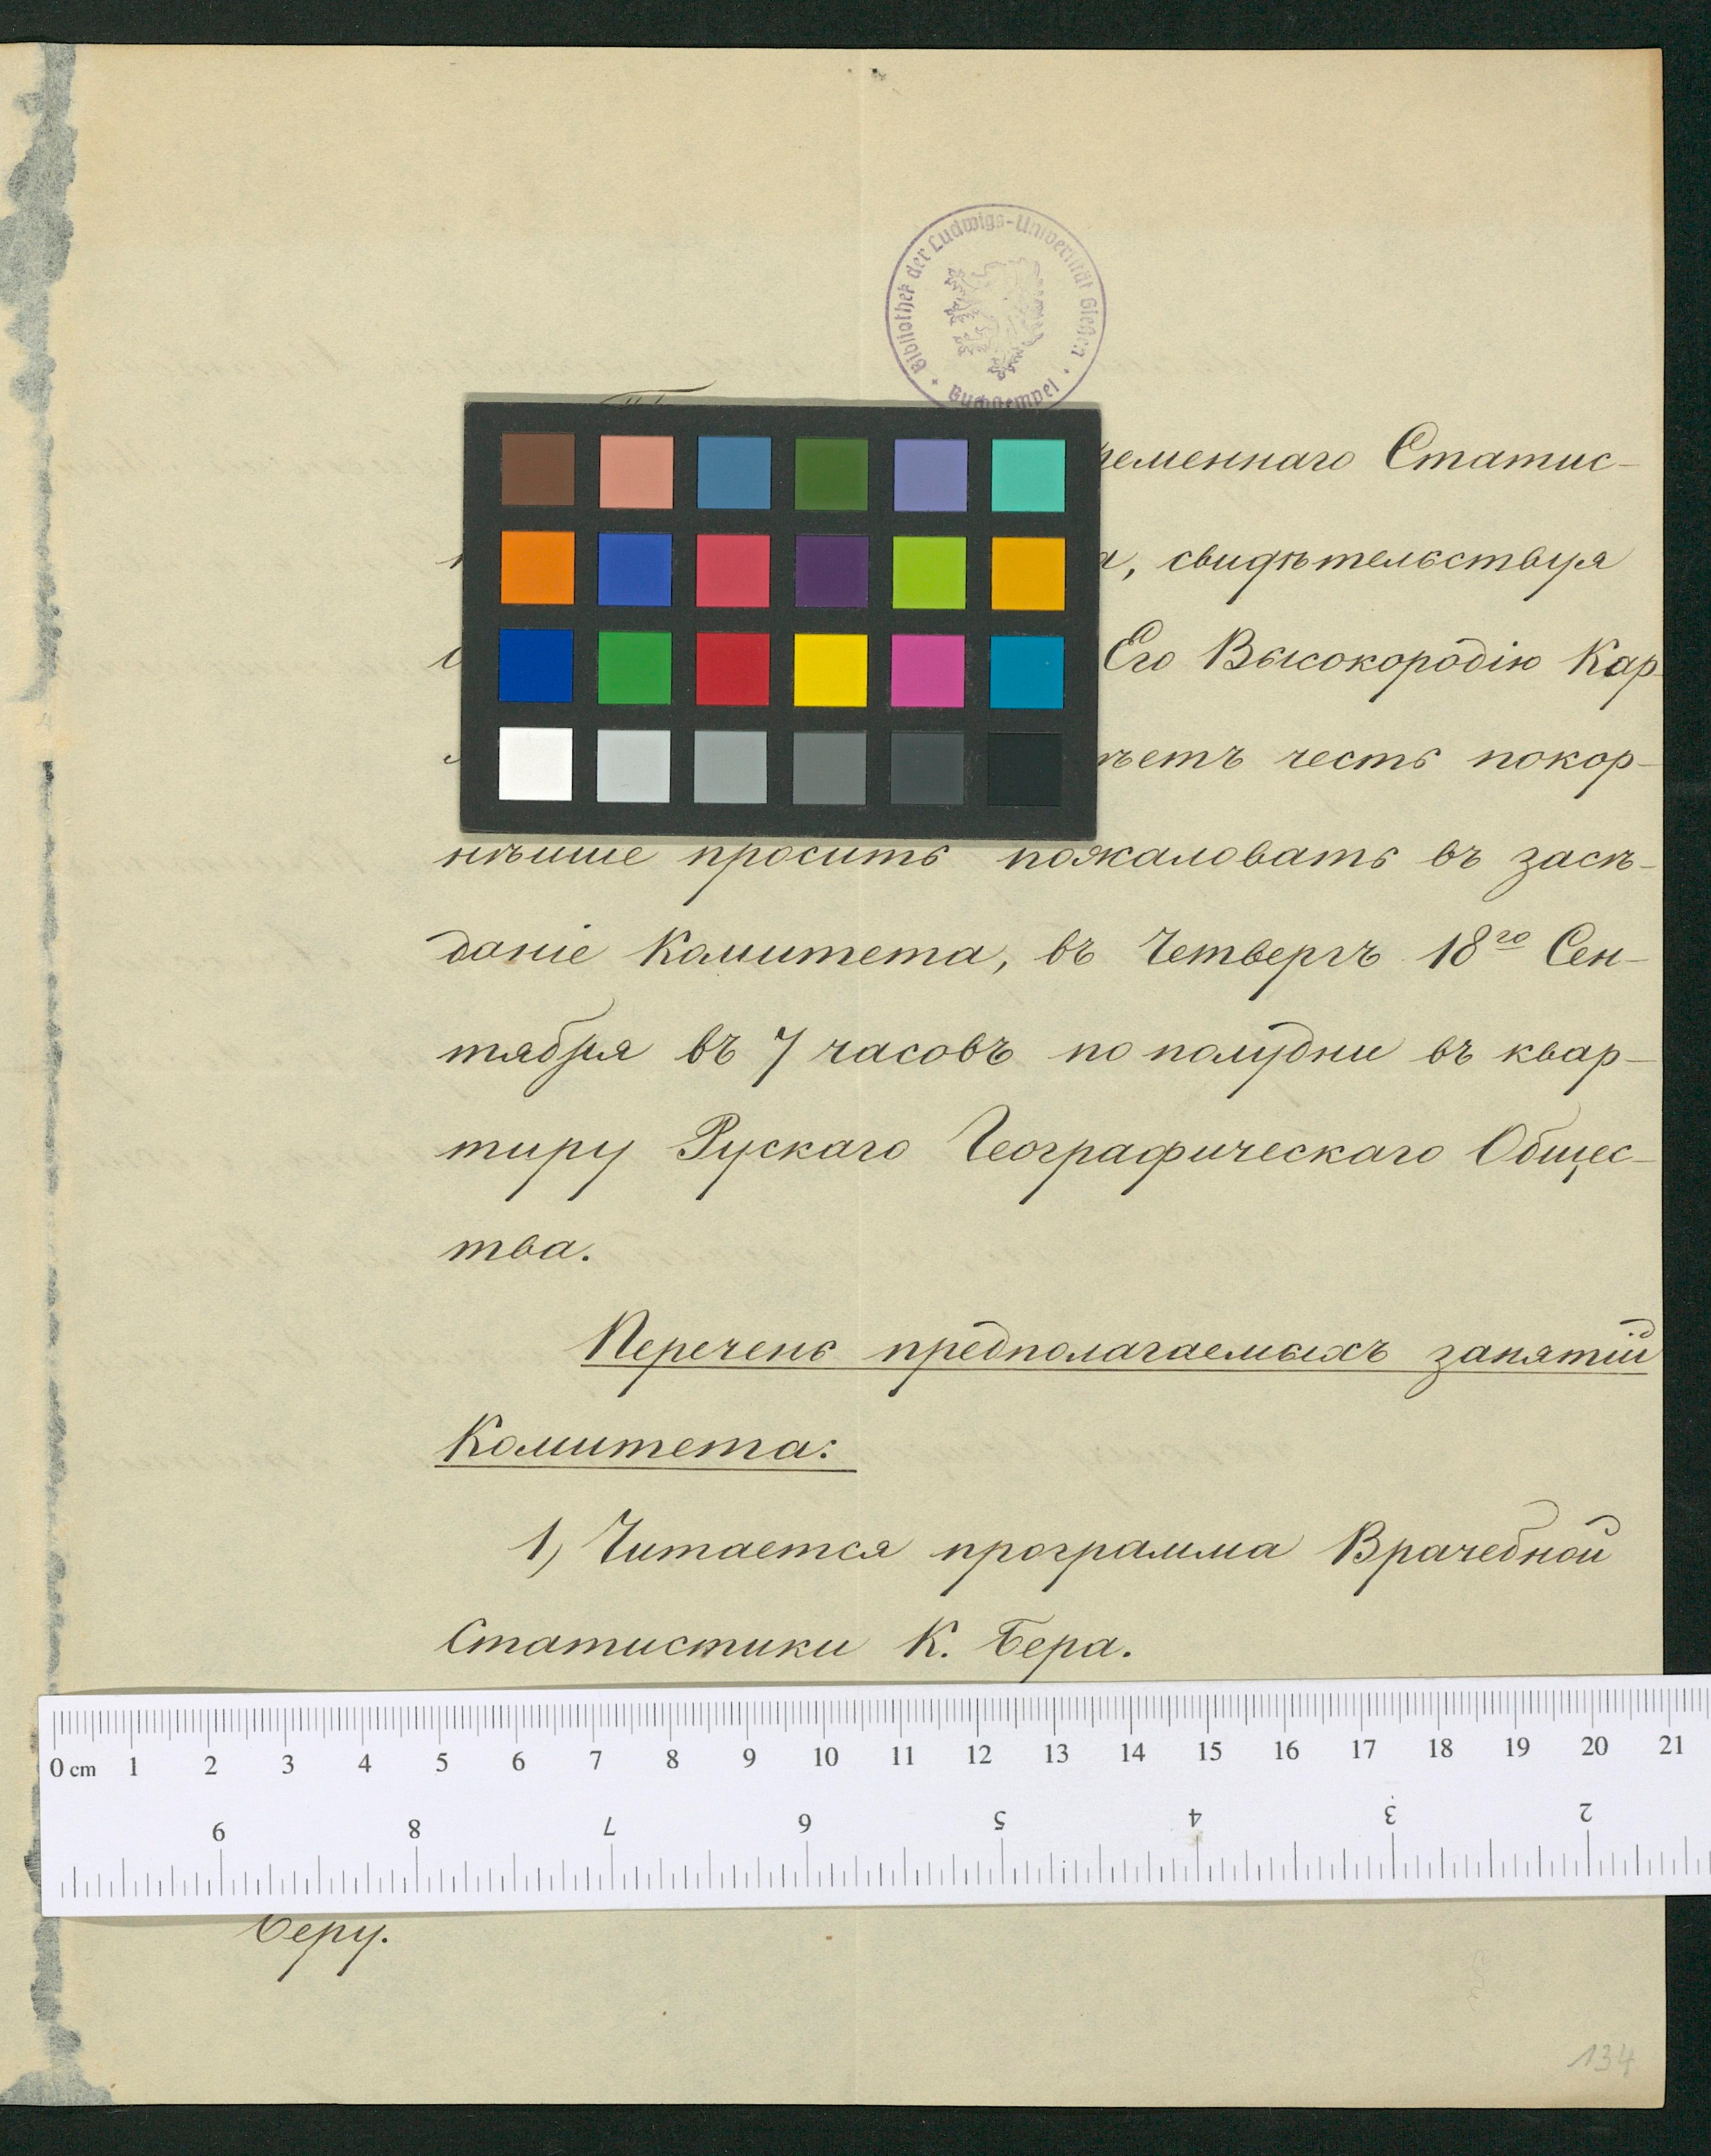 Bibliothek der Ludwigs-Universität Gießen
Buchstempel
ременнаго Статис-
а, свидѣтельствуя
Его Высокородію Кар-
ѣетъ честь покор-
нѣйше просить пожаловать въ засѣ-
даніе Комитета, въ Четвергъ 18го Сен-
тября въ 7 часовъ по полудни въ квар-
тиру Рускаго Географическаго Общес-
тва.
Перечень предполагаемыхъ занятій
Комитета:
1) Читается программа Врачебной
Статистики К. Бера.
0 cm 1 2 3 4 5 6 7 8 9 10 11 12 13 14 15 16 17 18 19 20 21
9 8 7 6 5 4 3 2
Беру.
134